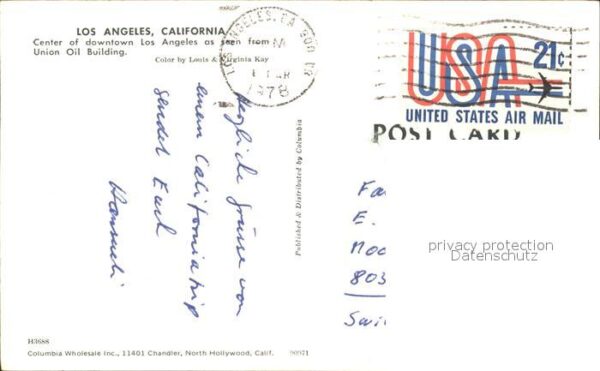 LOS ANGELES, CALIFORNIA
Center of downtown Los Angeles as seen from
Union Oil Building.
Color by Louis & Virginia Kay
LOS ANGELES, CA 900
1978
USA 21¢
UNITED STATES AIR MAIL
POST CARD
Herzliche Grüsse von
einem Californiatrip
sendet Euch
Hansueli
Published & Distributed by Columbia
Fa
E.
Moo
803
Swi
privacy protection
Datenschutz
H3688
Columbia Wholesale Inc., 11401 Chandler, North Hollywood, Calif. 90971